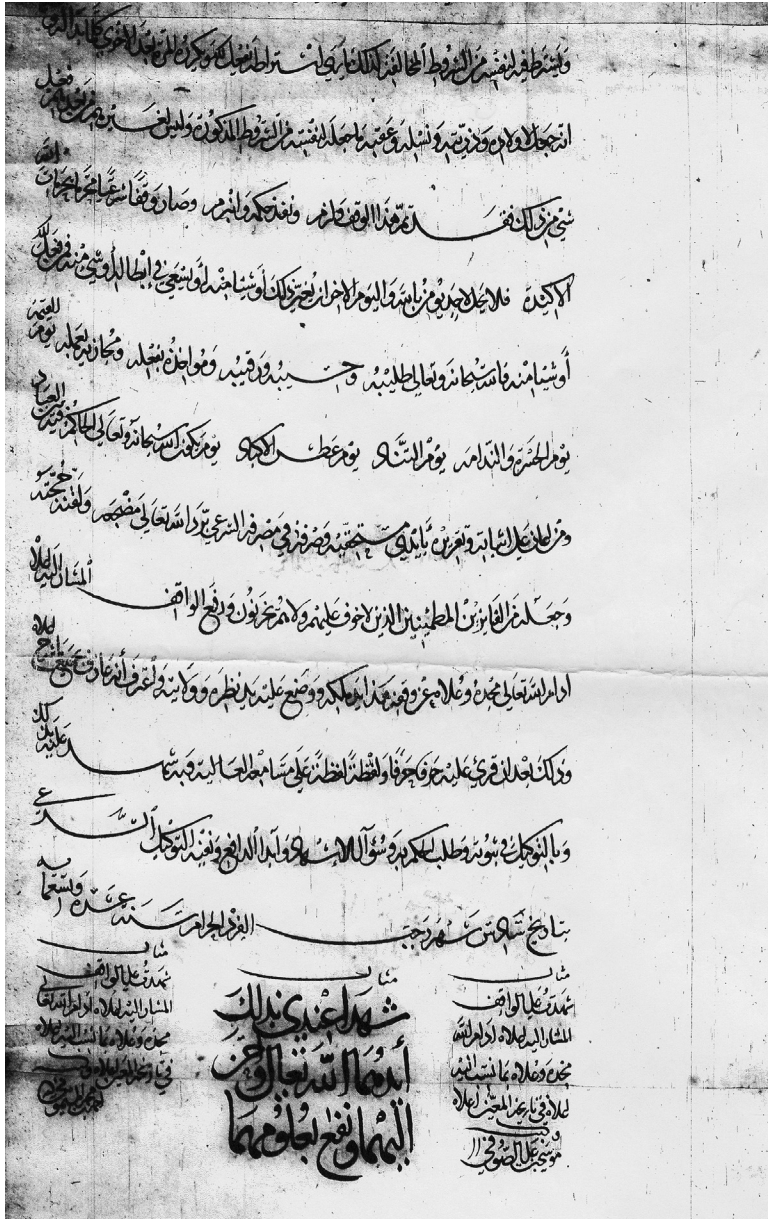 ويشترط فيه لنفسه من الشروط المخالفة لذلك ما يرى اشتراطه فيفعل ذلك ويكرره المرة بعد الأخرى كلما بدا له
انه جعل لاولاده وذريته ونسله وعقبه ما جعله لنفسه من الشروط المذكورة وليس لغيرهم من بعدهم فعل
شي من ذلك فقد تم هذا الوقف ولزم ونفذ حكمه وانبرم وصار وقفا شرعيا
الاكيدة فلا يحل لاحد يومن بالله واليوم الاخر ان يغير ذلك أو شيا منه أو يسعى في إبطاله أو شي منه فمن فعل ذلك
أو شيا منه فالله سبحانه وتعالى طليبه وحسيبه ورقيبه ومواخذه بفعله ومجازيه بعمله يوم القيمة
يوم الحسرة والندامه يوم التناد يوم عطش الاكباد يوم يكون الله سبحانه وتعالى الحاكم فيه بين العباد
ومن اعان على اثباته وتقريره بايدي مستحقيه وصرفه في مصرفه الشرعي برد الله تعالى مضجعه ولقنه حجته
وجعله من الفايزين المطمئنين الذين لا خوف عليهم ولا هم يحزنون ورفع الواقف المشار اليه اعلاه
ادام الله تعالى مجده وعلاه عن وقفه هذا يد ملكه ووضع عليه يد نظره وولايته واعترف أنه عارف بجميع ما شرح اعلاه
وذلك بعد ان قري عليه حرفا حرفا ولفظة لفظة على مسامعه العالية وبه شهد عليه بذلك
وبالتوكيل في ثبوته وطلب الحكم به وسؤال الاشهاد وابدا الدافع ونفيه التوكيل الشرعي
بتاريخ سادس شهر رجب الفرد الحرام سنة وتسعمايه
مثال
شهدت على الواقف
المشار اليه اعلاه ادام الله
مجده وعلاه بما نسب اليه
اعلاه في تاريخه المعين اعلاه
وكتب
على الصوفي
مثال
شهدا عندي بذلك
أيدهما الله تعالى وأحسن
إليهما ونفع بعلومهما
مثال
شهدت على الواقف
المشار اليه اعلاه ادام الله تعالى
مجده وعلاه بما نسب اليه اعلاه
في تاريخه المعين اعلاه وكتب